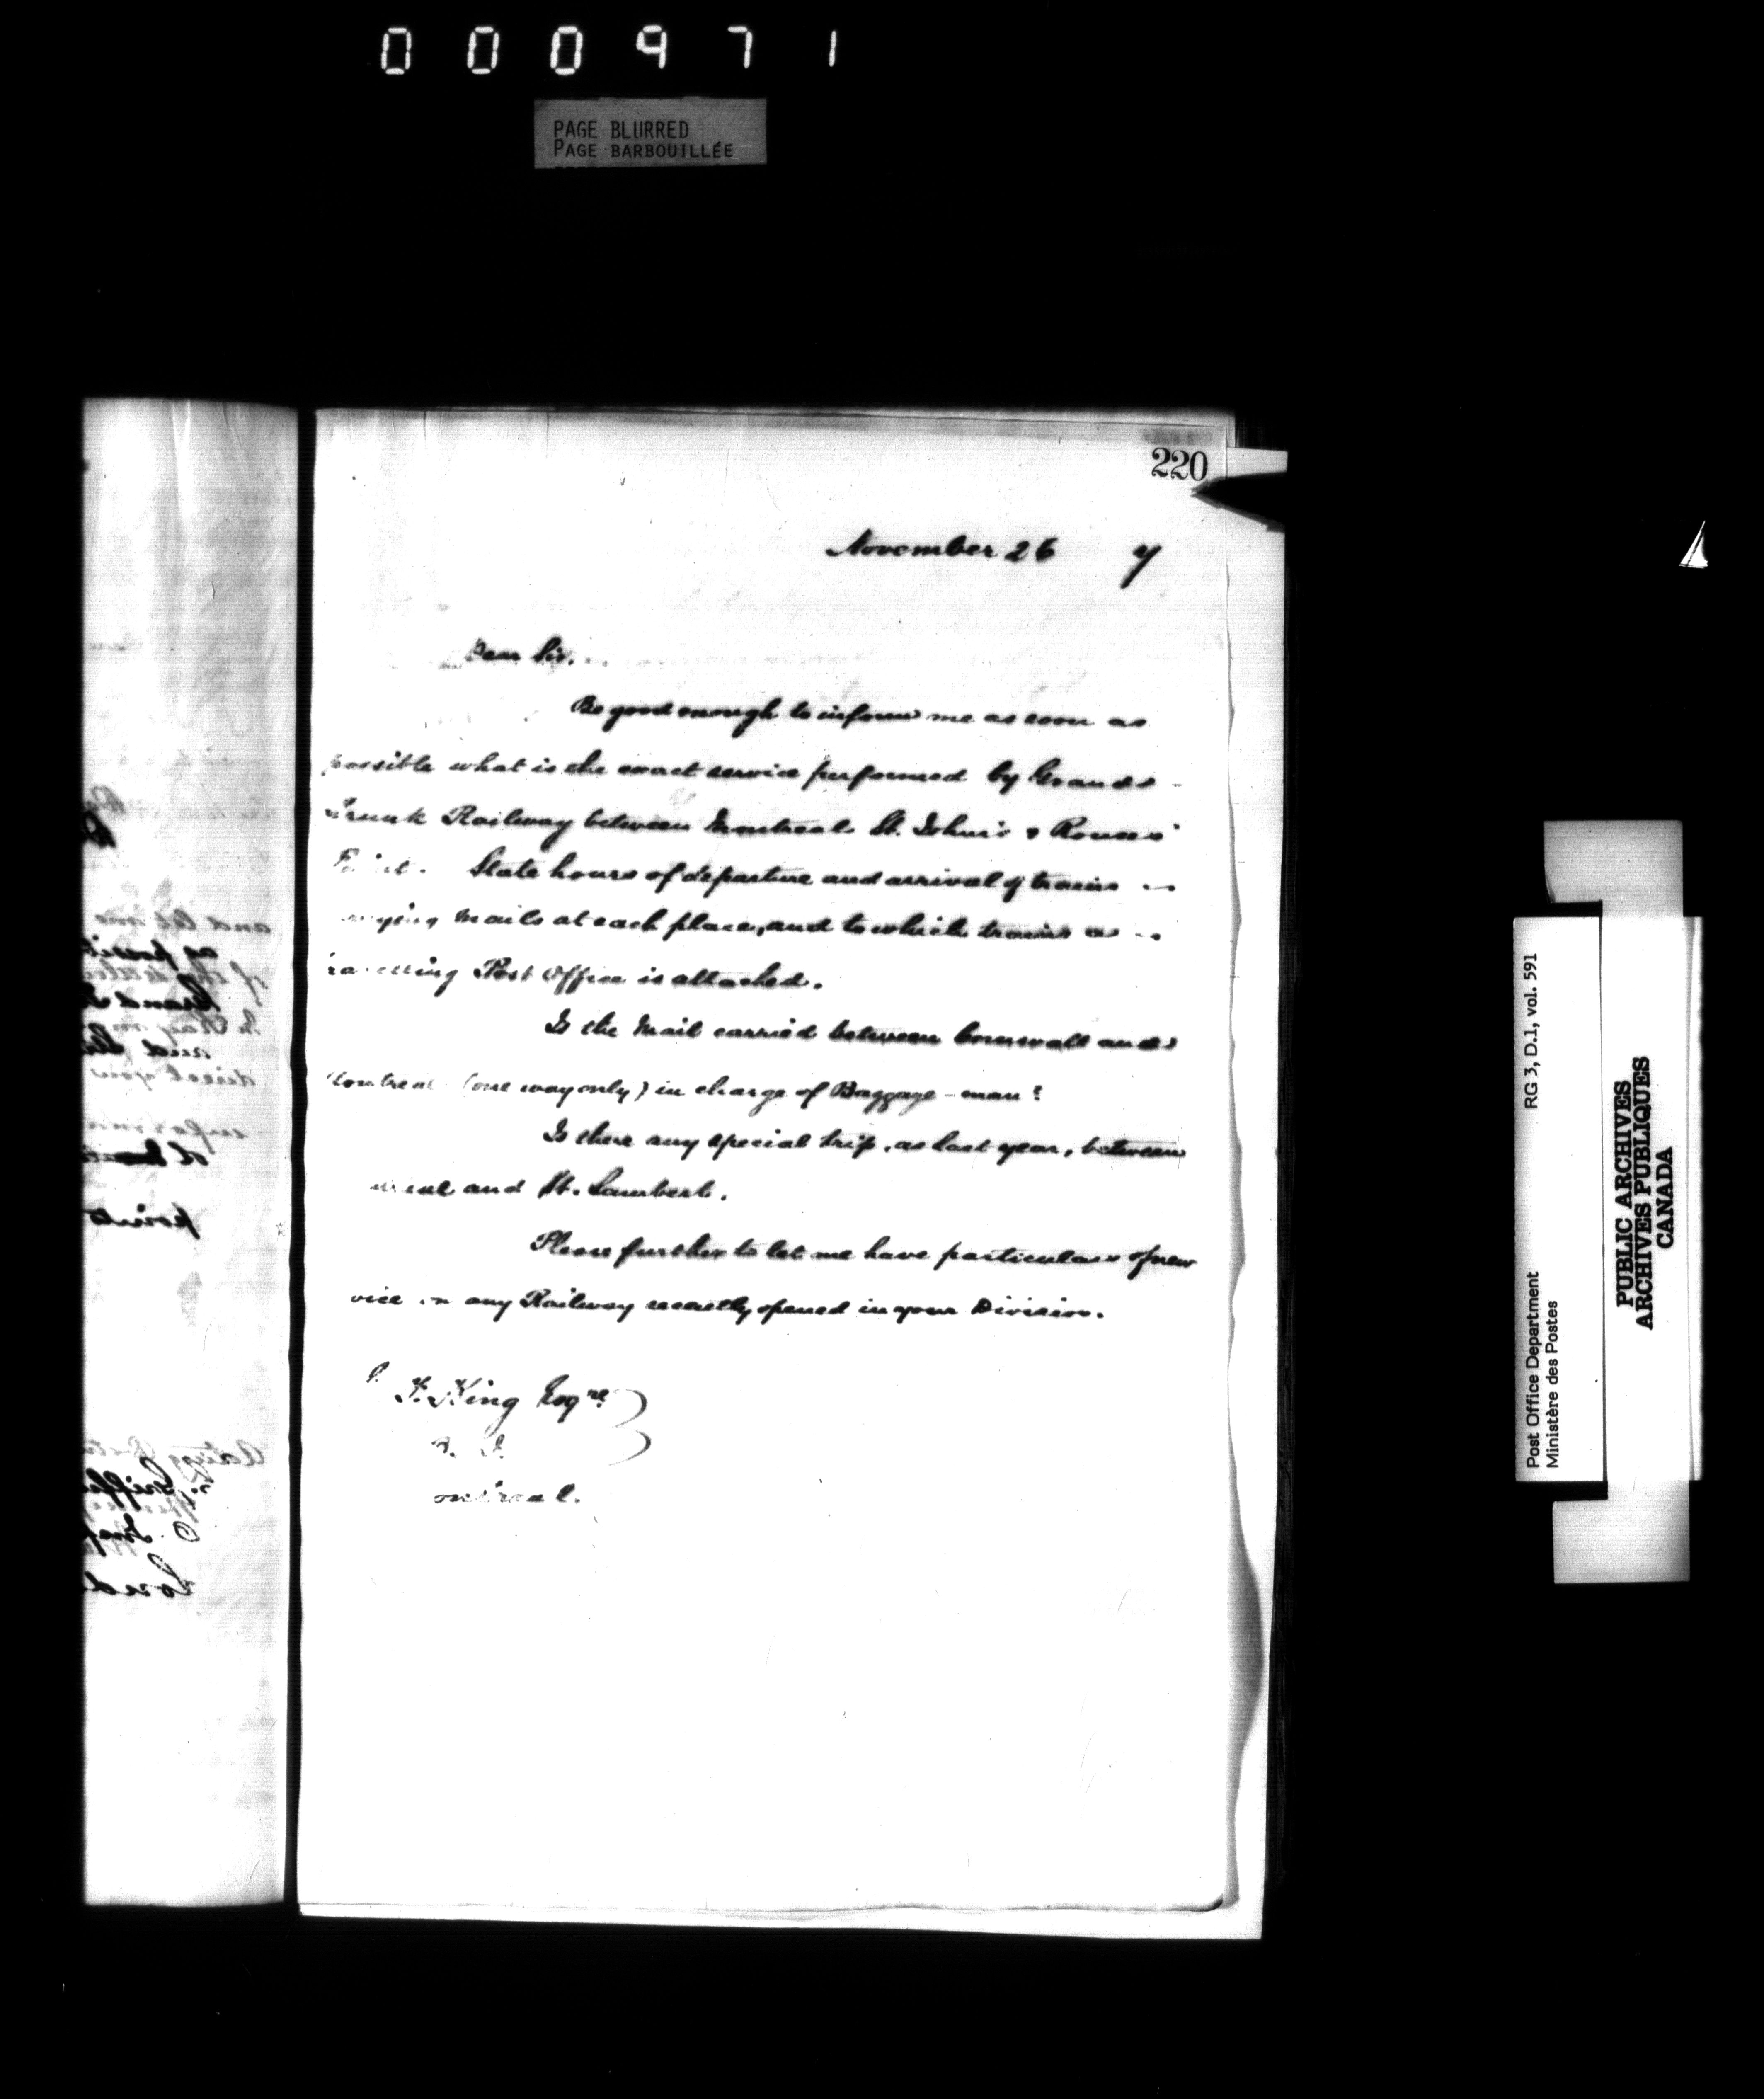 000971
PAGE BLURRED
PAGE BARBOUILLÉE
220
November 26 7
Dear Sir,
Be good enough to inform me as soon as
possible what is the exact service performed by Grand
Trunk Railway between Montreal St. John's & Rouses'
Point. State hours of departure and arrival of trains
mails at each place, and to which trains a
Post Office is attached.
Is the Mail carried between Cornwall and
Montreal (one way only) in charge of Baggage-man?
Is there any special trip, as last year, between
and St. Lambert.
Please further to let me have particulars of new
vice on any Railway recently opened in your Division.
F. King Esqre.
P. O. I.
ontreal.
and let me
as possib
Grand
direct you
points
Acting
Griffi
Lond
Post Office Department RG 3, D.1, vol. 591
Ministère des Postes
PUBLIC ARCHIVES
ARCHIVES PUBLIQUES
CANADA